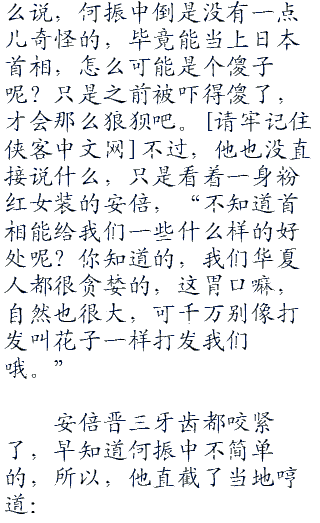 么说，何振中倒是没有一点
儿奇怪的，毕竟能当上日本
首相，怎么可能是个傻子
呢？只是之前被吓得傻了，
才会那么狼狈吧。[请牢记住
侠客中文网]不过，他也没直
接说什么，只是看着一身粉
红女装的安倍，“不知道首
相能给我们一些什么样的好
处呢？你知道的，我们华夏
人都很贪婪的，这胃口嘛，
自然也很大，可千万别像打
发叫花子一样打发我们
哦。”
安倍晋三牙齿都咬紧
了，早知道何振中不简单
的，所以，他直截了当地哼
道：